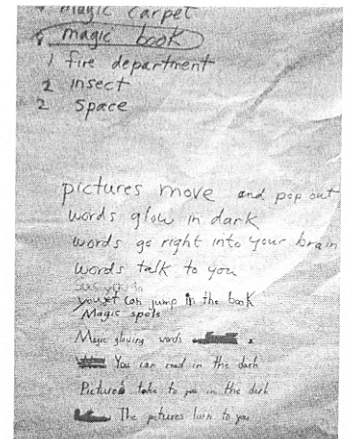 magic carpet
6 magic book
1 fire department
2 insect
2 space
pictures move and pop out
words glow in dark
words go right into your brain
words talk to you
can jump in the book
Magic spots
Magic glowing words
You can read in the dark
Pictures take to you in the dark
The pictures turn to you